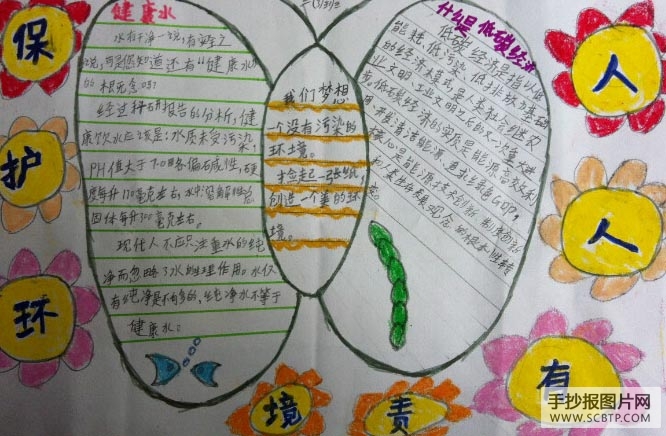 保
护
环
境
人
人
有
责
健康水
水有干净一说，有污染之
说，可是你知道还有“健康水”
的概念吗？
经过科研报告的分析，健
康饮水应该是：水质未受污染，
PH值大于7.0略偏碱性，硬
度每升170毫克左右，水中溶解性总
固体每升300毫克左右。
现代人不应只注重水的纯
净而忽略了水的生理作用。水仅
有纯净是不够的，纯净水不等于
健康水。
我们梦想
一个没有污染的
环境。
捡起一张纸，
创造一个美的环
境。
什么是低碳经济
低碳经济是指以低
能耗、低污染、低排放为基础
的经济模式，是人类社会继农
业文明、工业文明之后的又一次重大进
步。低碳经济的实质是能源高效利
用、开发清洁能源、追求绿色GDP，
核心是能源技术创新、制度创新
和人类生存发展观念的根本性转
变
手抄报图片网
WWW.SCBTP.COM